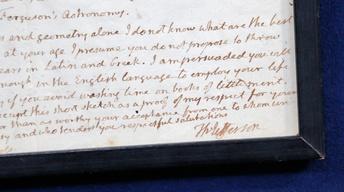 Ferguson's Astronomy.
and geometry alone I do not know what are the best
at your age. I presume you do not propose to throw
ears in Latin and Greek. I am persuaded you will
nough in the English language to employ your life
if you avoid wasting time on books of little merit.
accept this short sketch as a proof of my respect for your
than as worthy your acceptance from one to whom
ty and who tenders you respectful salutations
Th Jefferson